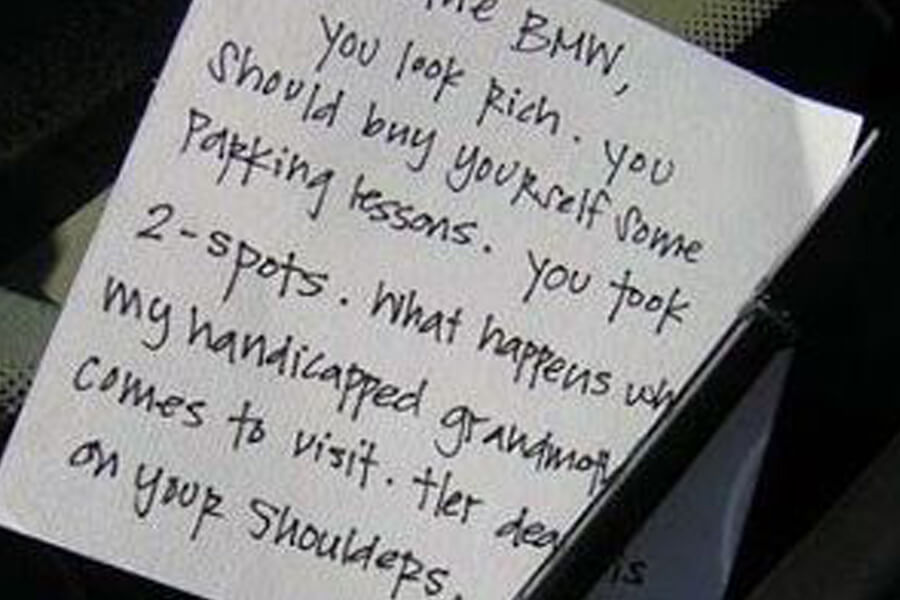 the BMW,
You look Rich. You
Should buy yourself Some
Parking lessons. You took
2-spots. What happens wh
my handicapped grandmoth
Comes to visit. Her dea
is
on your Shoulders.